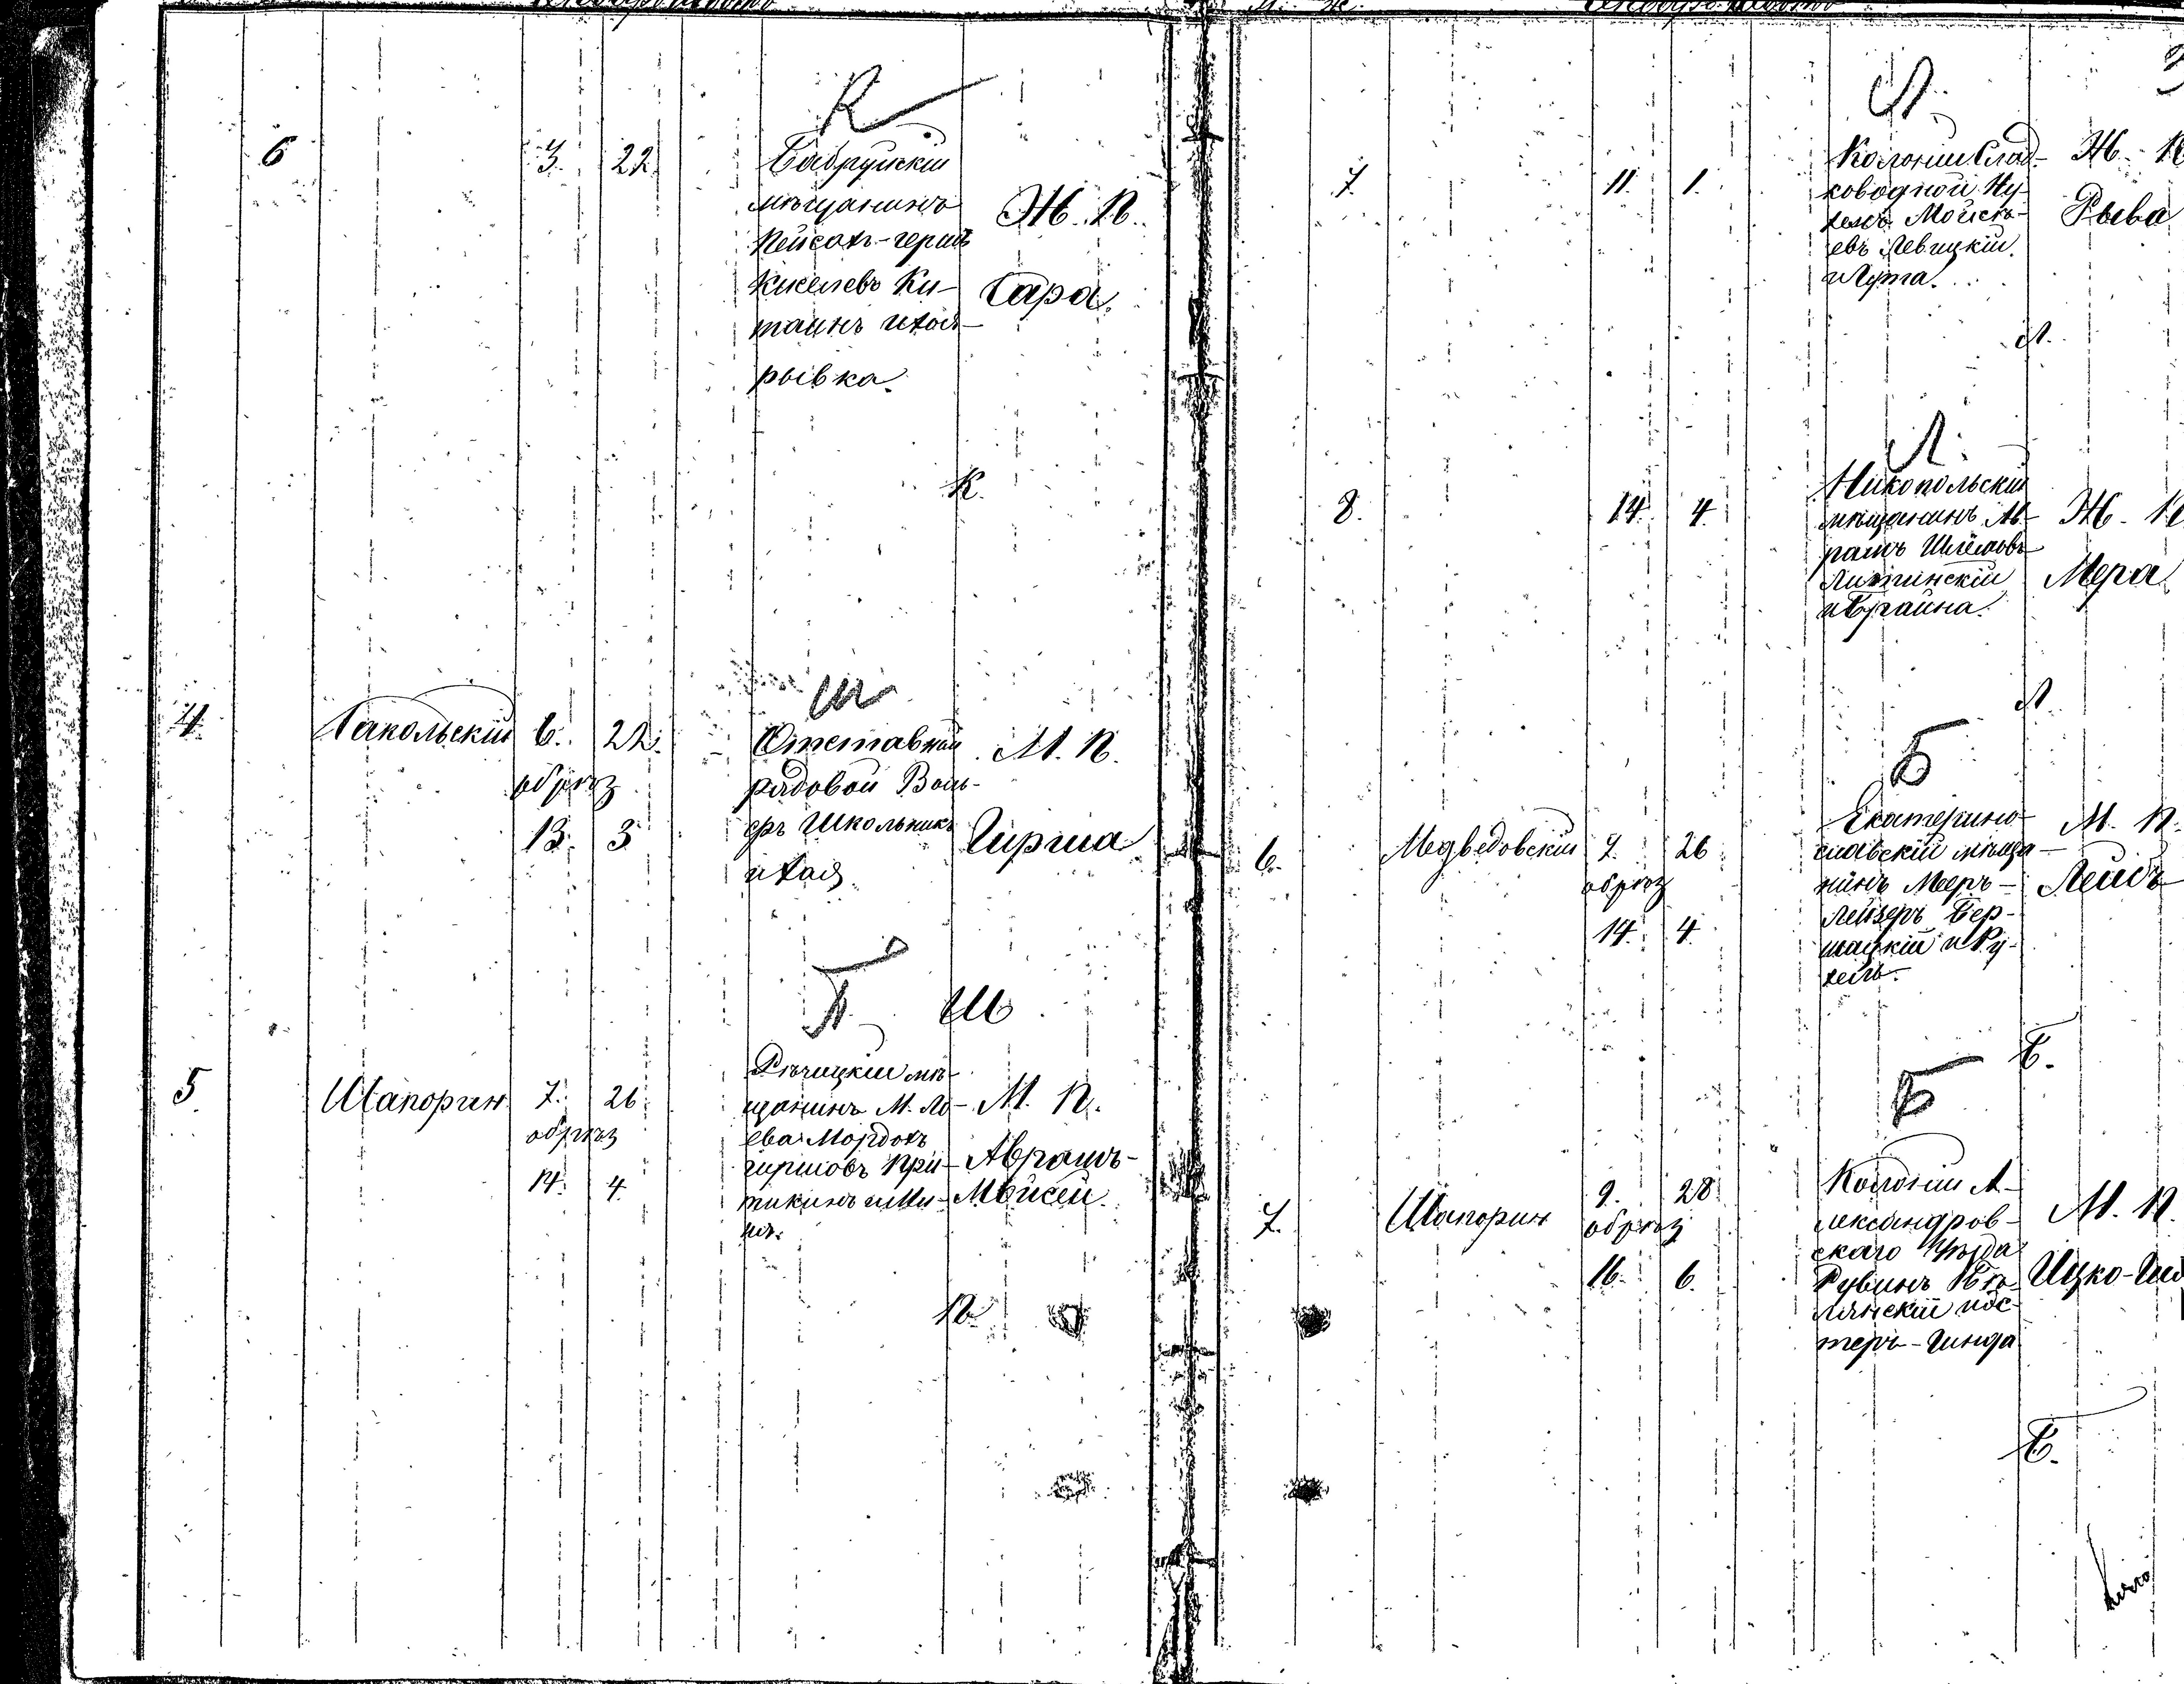 К
6
3. 22.
Бобруйскій
мѣщанинъ
Пейсахъ-герцъ
Кисилевъ Ки-
таинъ и Хая-
рывка.
Ж. П.
Сара.
К.
4.
Сакольскій
6. 22.
обрѣз
13. 3
Ш
Отставной
рядовой Воль-
фъ Школьникъ
и Хая
М. П.
Гирша
Ш
5.
Шапорин
7. 26.
обрѣз
14. 4.
П
Рѣчицкій мѣ-
щанинъ М. Ло-
ева Мордохъ
гиршовъ При-
тикинъ и Ми-
М. П.
Аврамъ-
Мойсей.
П.
Л.
7.
11. 1.
Колоніи Слад-
ководной Ну-
хемъ Мойсѣ-
евъ Левицкій
Ж. П
Рыва
Л.
Л.
8.
14. 4.
Никопольскій
мѣщанинъ Аб-
рамъ Шлёмовъ
Литинскій
и Брайна.
Ж. П
Мера
Л.
Б
6.
Медведовскій
7. 26
обрѣз
14. 4.
Екатерино-
славскій мѣща-
нинъ Мееръ-
Лейзеръ Бер-
шацкій и Ру-
хель.
М. П.
Лейбъ
Б.
Б
7.
Шапорин
9. 28
обрѣз
16. 6.
Колоніи А-
лександров-
скаго Уѣзда
Рувинъ
М. П.
Ицко-
теръ-Гинда
Б.